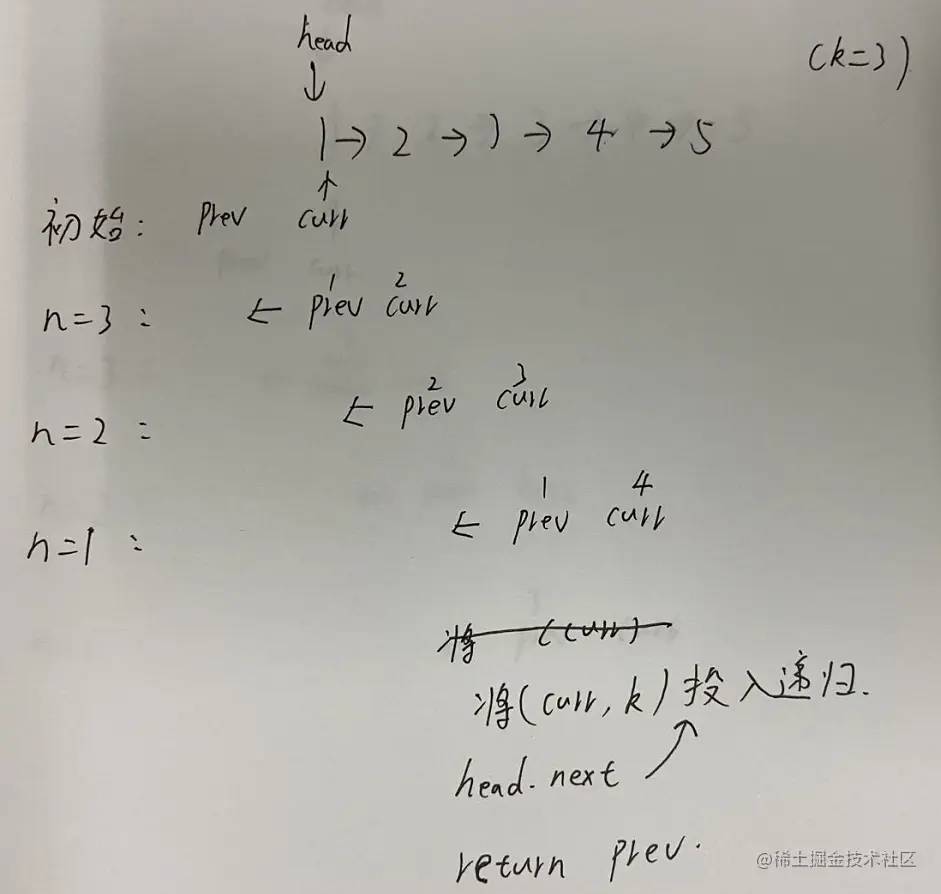 head
(k=3)
↓
1 → 2 → 3 → 4 → 5
↑
初始: prev curr
1 2
n=3 : ← prev curr
2 3
n=2 : ← prev curr
1 4
n=1 : ← prev curr
将 (curr)
将(curr, k) 投入递归.
head.next
return prev.
@稀土掘金技术社区